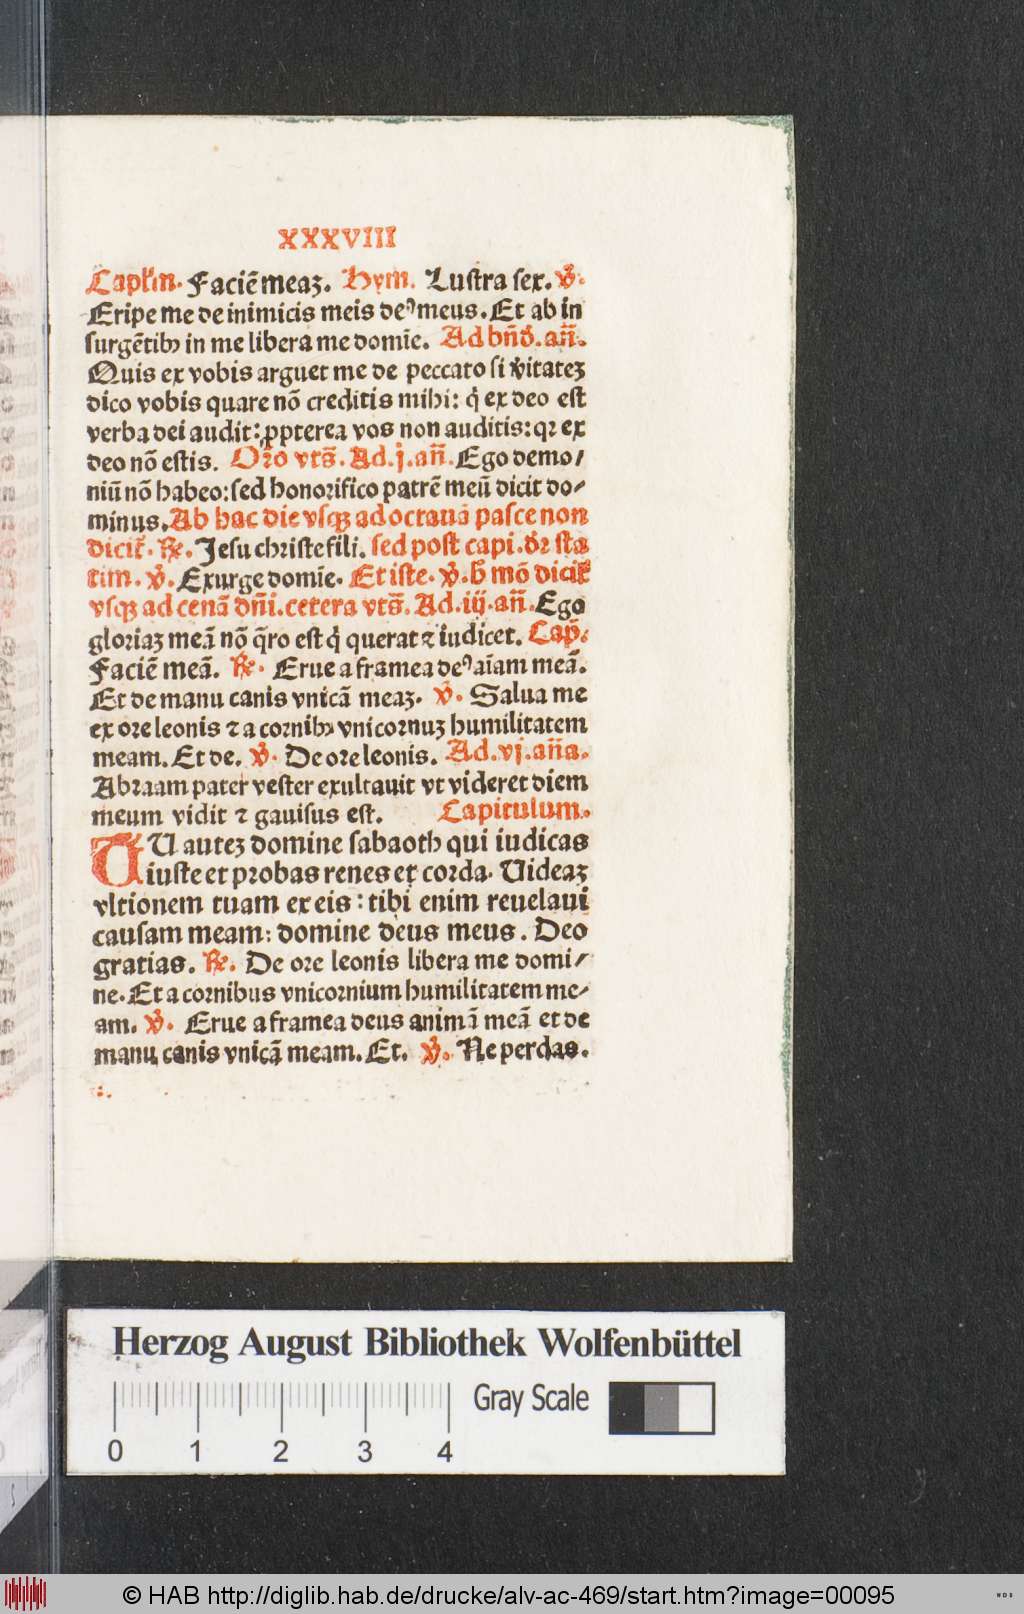 XXXVIII
Capl'm. Faciē meaꝫ. Hym. Lustra sex. ℣.
Eripe me de inimicis meis deꝰ meus. Et ab in
surgētibꝰ in me libera me domīe. Ad bn̄d̄. an̄.
Quis ex vobis arguet me de peccato si v̄itateꝫ
dico vobis quare nō creditis mihi: q̇ ex deo est
verba dei audit: ꝓpterea vos non auditis: qꝛ ex
deo nō estis. Oꝛo vts̄. Ad. j. an̄. Ego demo/
niū nō habeo: sed honoꝛifico patrē meū dicit do/
minus. Ab hac die vsqꝫ ad octauā pasce non
dicit᷑. ℟. Jesu christe fili. sed post capi. dꝛ sta
tim. ℣. Exurge domīe. Et iste. ℣. h̄ mō dicit᷑
vsqꝫ ad cenā dn̄i. cetera vts̄. Ad. iij. an̄. Ego
gloriaꝫ meā nō q̄ro est q̇ querat ⁊ iudicet. Cap̄.
Faciē meā. ℟. Erue a framea deꝰ aīam meā.
Et de manu canis vnicā meaꝫ. ℣. Salua me
ex ore leonis ⁊ a cornibꝰ vnicornuꝫ humilitatem
meam. Et de. ℣. De ore leonis. Ad. vj. an̄a.
Abꝛaam pater vester exultauit vt videret diem
meum vidit ⁊ gauisus est. Capitulum.
TU auteꝫ domine sabaoth qui iudicas
iuste et probas renes et corda. Uideaꝫ
vltionem tuam ex eis: tibi enim reuelaui
causam meam: domine deus meus. Deo
gratias. ℟. De oꝛe leonis libera me domi/
ne. Et a cornibus vnicornium humilitatem me/
am. ℣. Erue a framea deus animā meā et de
manu canis vnicā meam. Et. ℣. Ne perdas.
Herzog August Bibliothek Wolfenbüttel
Gray Scale
0 1 2 3 4
© HAB http://diglib.hab.de/drucke/alv-ac-469/start.htm?image=00095